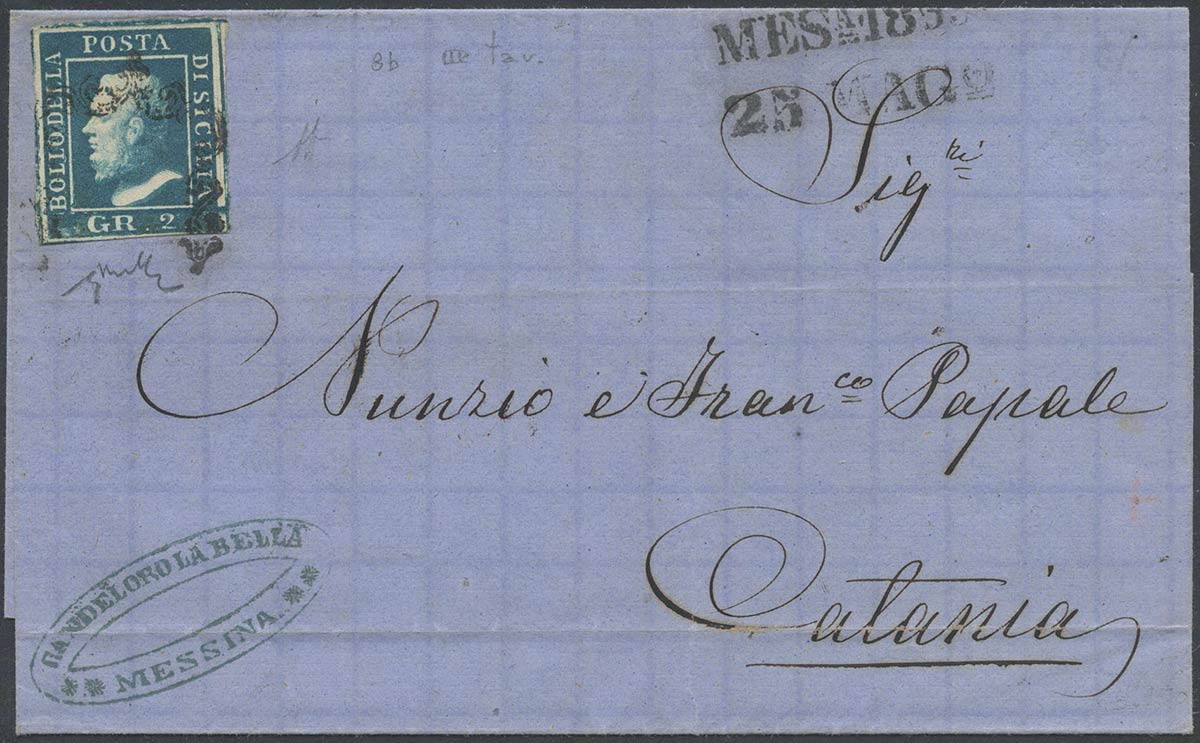 POSTA
BOLLO DELLA
DI SICILIA
GR. 2
8b III tav.
MESA 185
25 MAG
Sig.ri
Nunzio e Fran.co Papale
Catania
CANDELORO LA BELLA
MESSINA